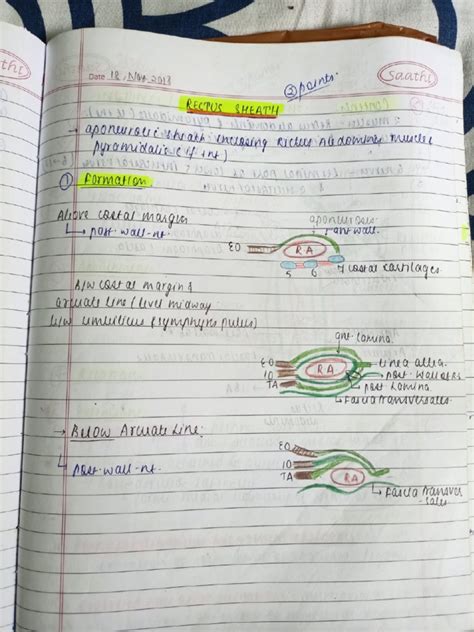 Saathi
Date 18, Nov, 2018
③ points.
RECTUS SHEATH
→ aponeurotic sheath enclosing Rectus Abdominis muscle &
pyramidalis (if +nt)
① Formation
Above costal margin
↳ post. wall -nt.
aponeurosis
ant wall.
EO
RA
5 6 7 costal cartilages
B/w costal margin &
arcuate line (level midway
b/w umbilicus & symphysis pubis)
ant. lamina.
EO
IO
TA
RA
linea alba.
post. wall of RS
post lamina.
Fascia transversalis.
→ Below Arcuate Line:
↳ post. wall -nt.
EO
IO
TA
RA
Fascia transver
-salis.